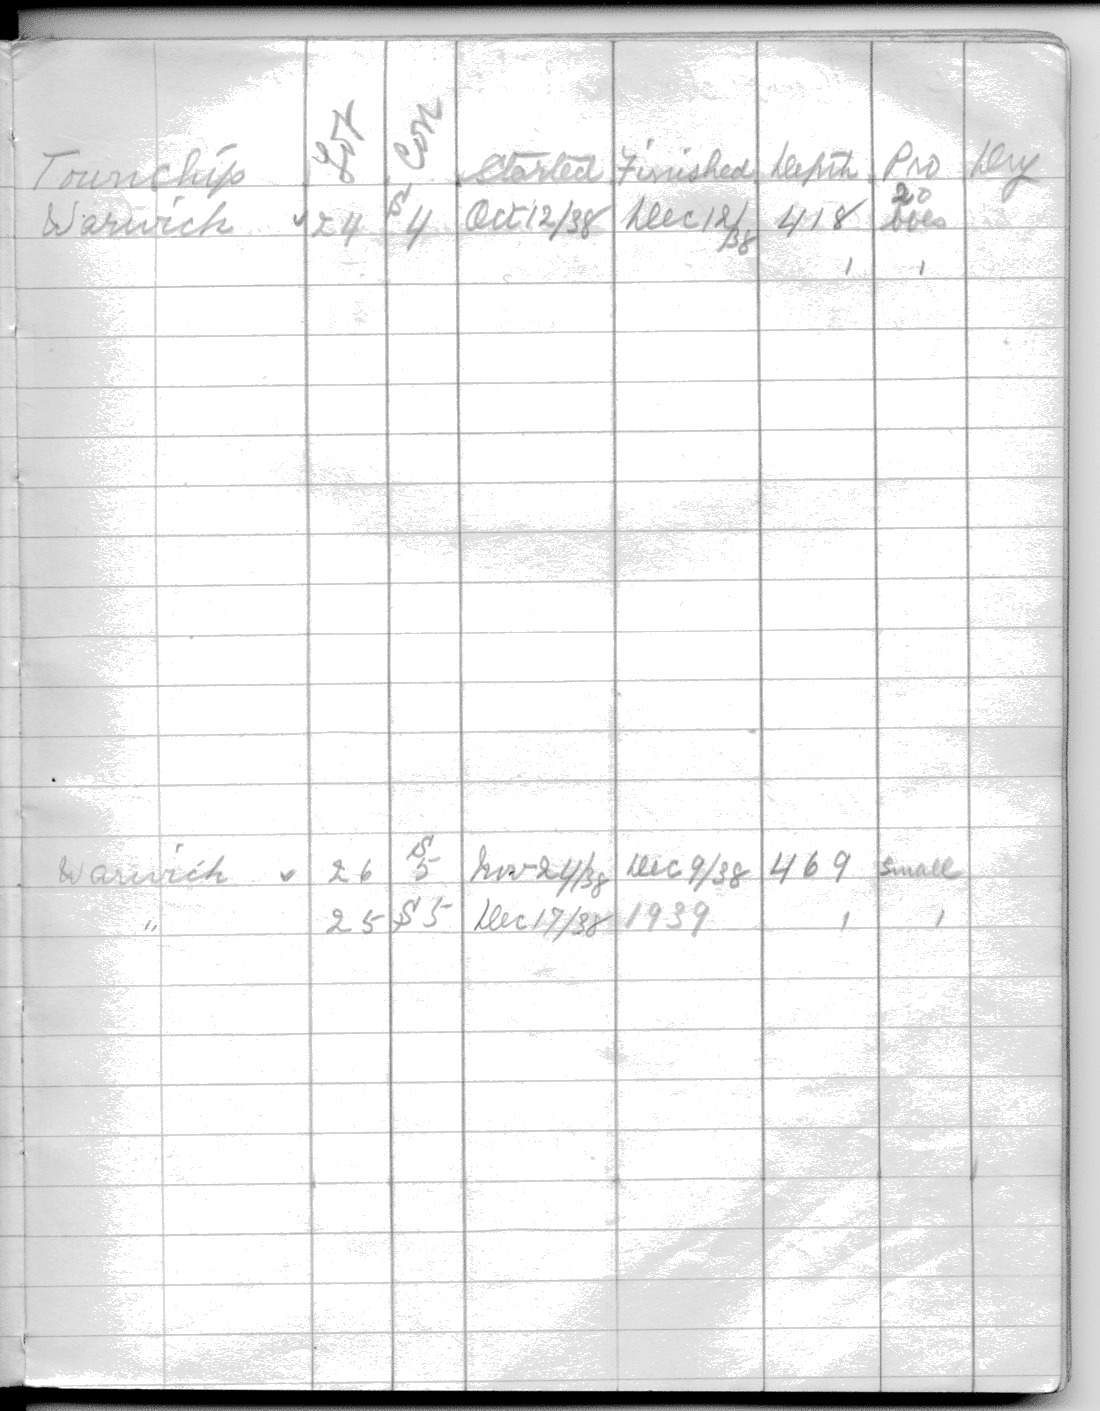 Township Lot Con Started Finished Depth Pro Dry
Warwick ✓ 24 S 4 Oct 12/38 Dec 12/38 418 20 bbls
Warwick ✓ 26 S 5 Nov 24/38 Dec 9/38 469 Small
" 25 S 5 Dec 17/38 1939